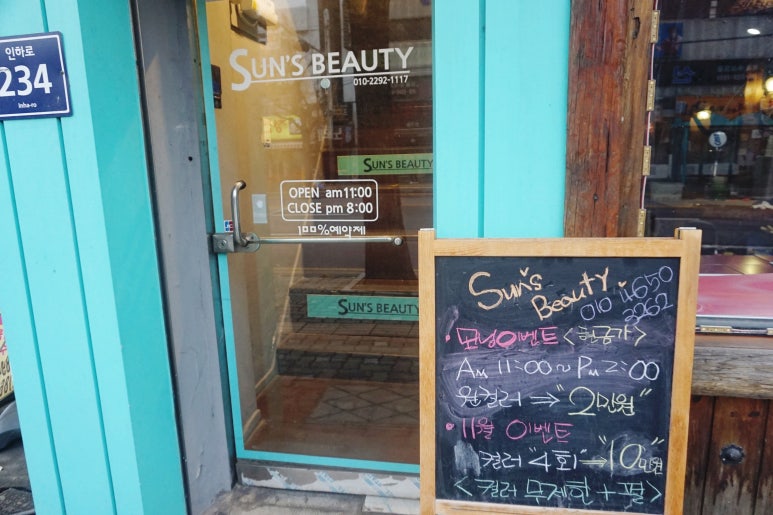 인하로
234
Inha-ro
SUN'S BEAUTY
010-2292-1117
SUN'S BEAUTY
OPEN am 11:00
CLOSE pm 8:00
100%예약제
SUN'S BEAUTY
Sun's
Beauty
010 4650
3262
·모닝이벤트 <현금가>
AM 11:00 ~ PM 2:00
원컬러 ⇒ "2만원"
·11월 이벤트
컬러 "4회" ⇒ "10만원"
<컬러 무제한 + 펄>